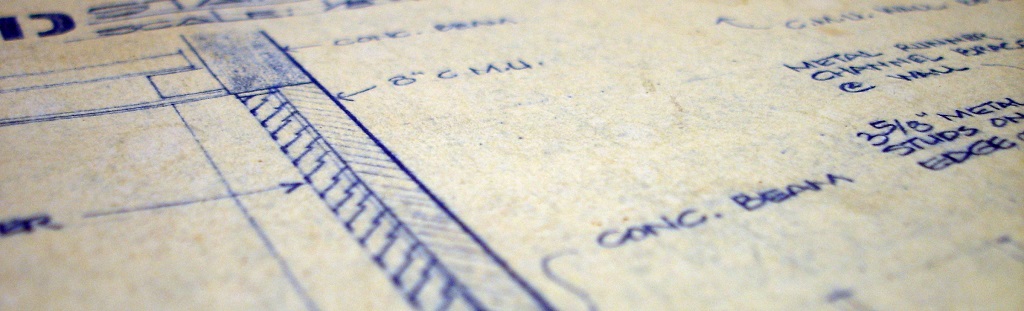 SCALE:
CONC. BEAM
8" C.M.U.
C.M.U. WALL
METAL RUNNER
CHANNEL BRACE
@ WALL
3 5/8" METAL
STUDS ON
EDGE
CONC. BEAM
ER